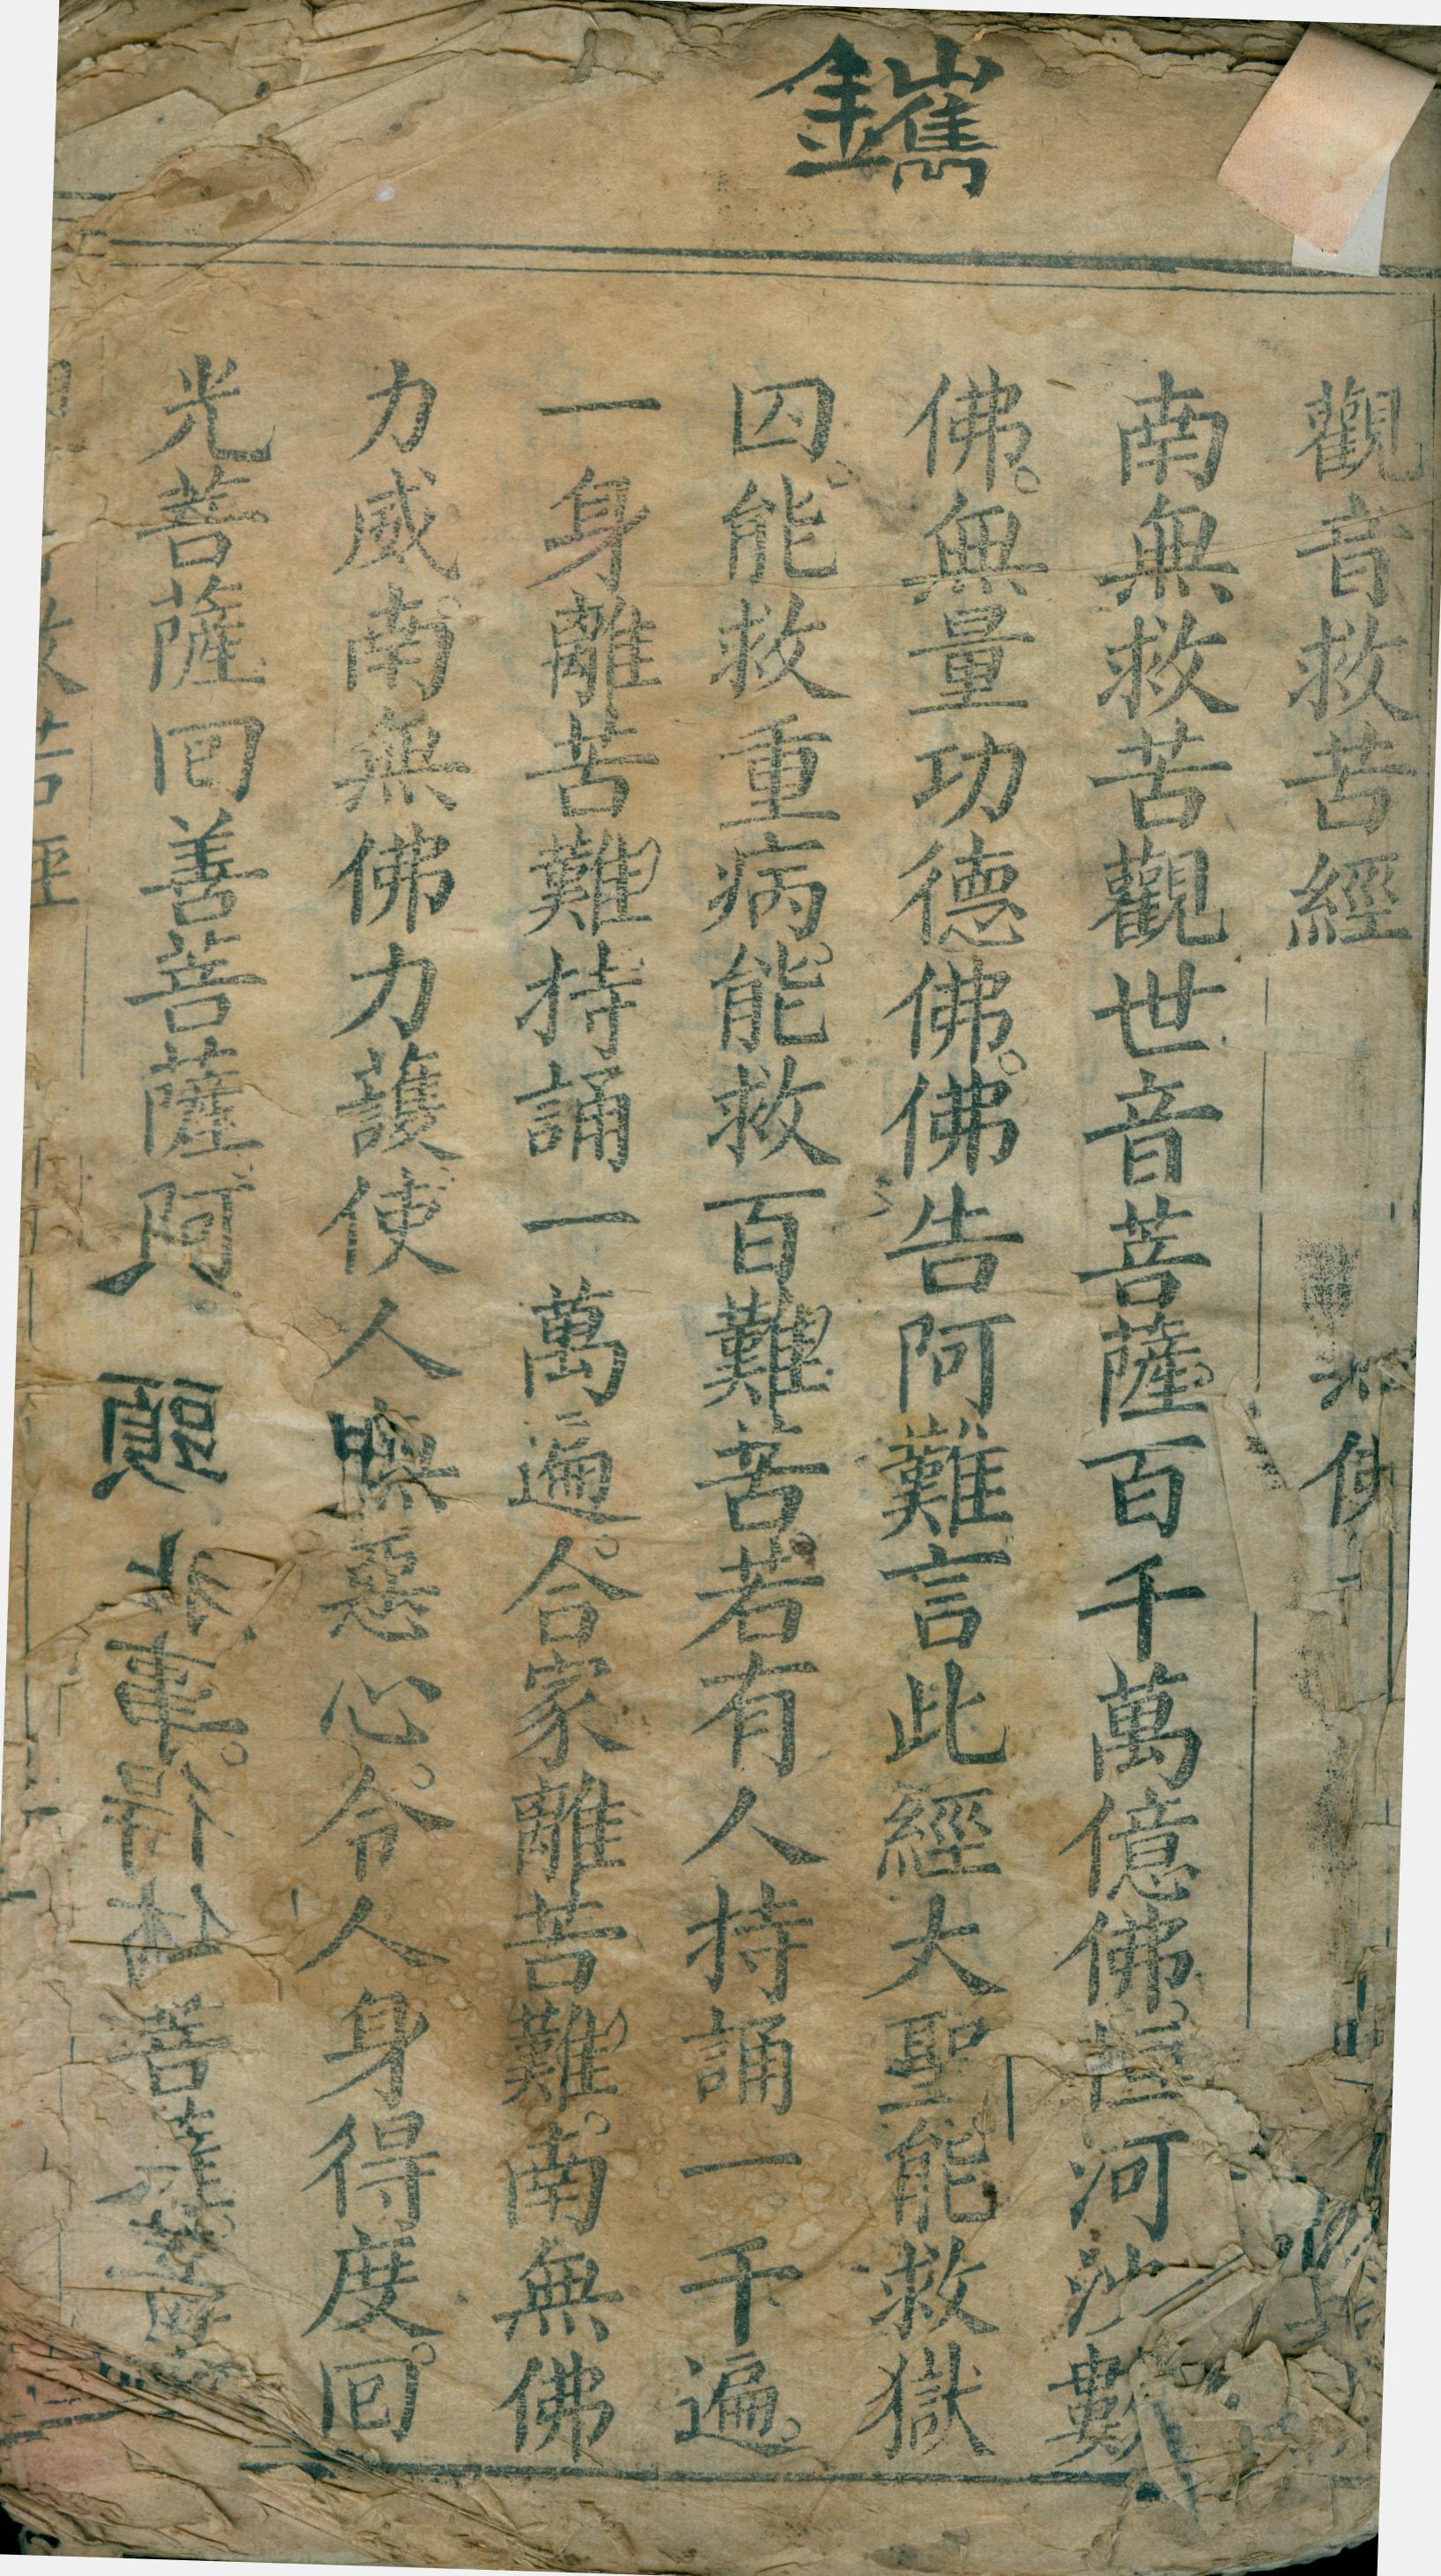 鑴
觀音救苦經
南無救苦觀世音菩薩百千萬億佛恒河沙數
佛。無量功德佛。佛告阿難言此經大聖能救獄
囚能救重病能救百難苦。若有人持誦一千遍。
一身離苦難持誦一萬遍。合家離苦難。南無佛
力威南無佛力護使人無惡心。令人身得度。回
光菩薩回善菩薩阿